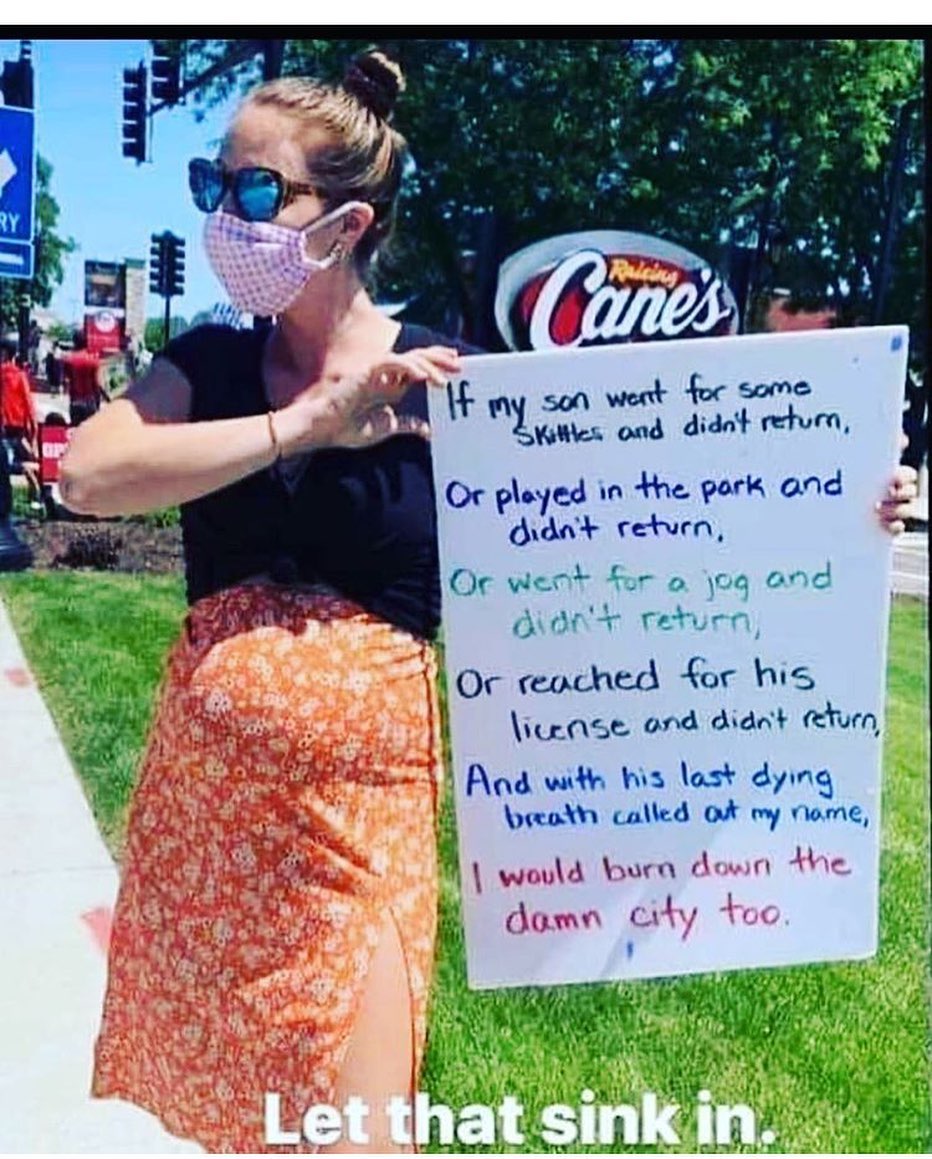 RY
Raising
Cane's
If my son went for some
Skittles and didn't return,
Or played in the park and
didn't return,
Or went for a jog and
didn't return,
Or reached for his
license and didn't return,
And with his last dying
breath called out my name,
I would burn down the
damn city too.
Let that sink in.